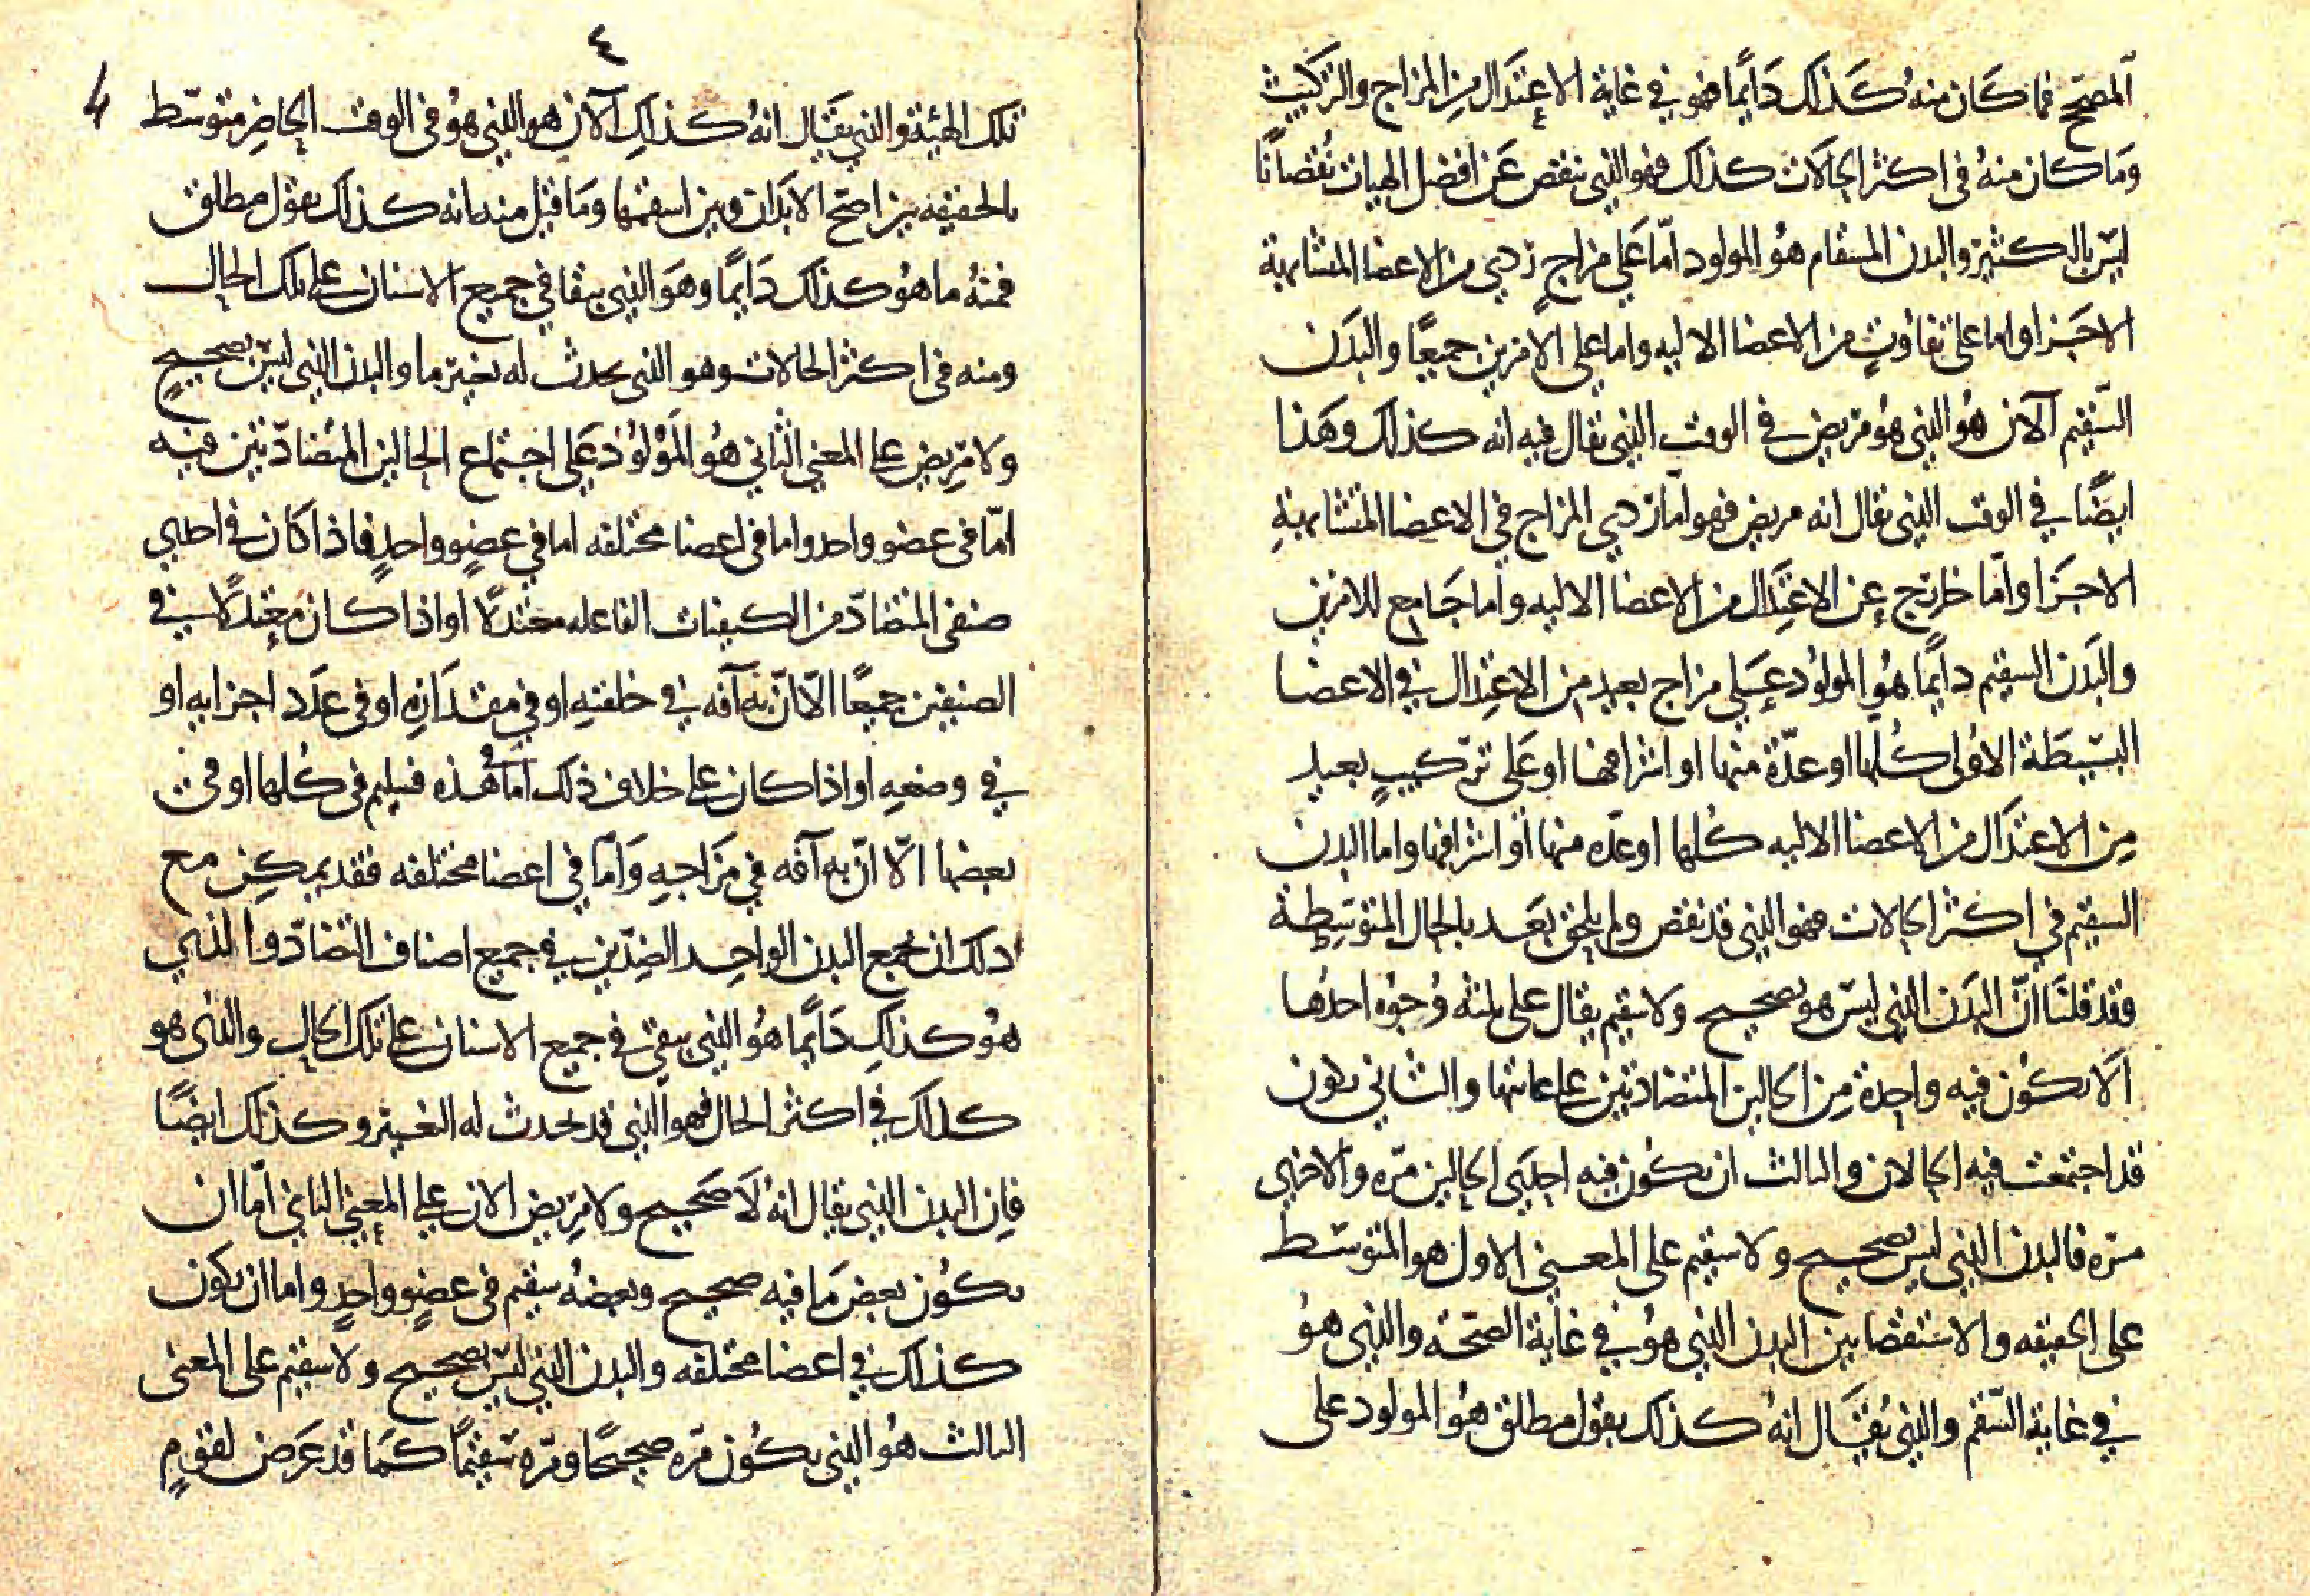 المصحح فما كان منه كذلك دايما فهو في غاية الاعتدال من المزاج والتركيب
وما كان منه في اكثر الحالات كذلك فهو الذي ينقص عن افضل الهيات نقصانا
ليس بالكثير والبدن المسقام هو المولود اما على مزاج ردي من الاعضا المتشابهة
الاجزا واما على تفاوت من الاعضا الاليه واما على الامرين جميعا والبدن
السقيم الآن هو الذي هو مريض في الوقت الذي يقال فيه انه كذلك وهذا
ايضا في الوقت الذي يقال انه مريض فهو اما ردي المزاج في الاعضا المتشابهة
الاجزا واما خارج عن الاعتدال من الاعضا الاليه واما جامع للامرين
والبدن السقيم دايما هو المولود على مزاج بعيد من الاعتدال في الاعضا
البسيطة الاولى كلها او عدة منها او اشرافها او على تركيب بعيد
من الاعتدال من الاعضا الاليه كلها او عده منها او اشرافها واما البدن
السقيم في اكثر الحالات فهو الذي قد نقص ولم يلحق بعد بالحال المتوسطة
فقد قلنا ان البدن الذي ليس هو بصحيح ولا سقيم يقال على ثلثه وجوه احدها
الا يكون فيه واحدة من الحالين المتضادتين على غايتها والثاني يكون
قد اجتمعت فيه الحالان والثالث ان يكون فيه احدى الحالين مره والاخرى
مره فالبدن الذي ليس بصحيح ولا سقيم على المعنى الاول هو المتوسط
على الحقيقه والاستقصا بين البدن الذي هو في غاية الصحة والذي هو
في غاية السقم والذي يقال انه كذلك بقول مطلق هو المولود على
٤
4
تلك الهيئة والذي يقال انه كذلك الآن هو الذي هو في الوقت الحاضر متوسط
بالحقيقه بين اصح الابدان وبين اسقمها وما قيل منه انه كذلك بقول مطلق
فمنه ما هو كذلك دايما وهو الذي يبقا في جميع الاسنان على تلك الحال
ومنه في اكثر الحالات وهو الذي يحدث له تغير ما والبدن الذي ليس بصحيح
ولا مريض على المعنى الثاني هو المولود على اجتماع الحالين المتضادتين فيه
اما في عضو واحد واما في اعضا مختلفه اما في عضو واحد فاذا كان في احدى
صنفي المتضاد من الكيفيات الفاعله معتدلا او اذا كان معتدلا في
الصنفين جميعا الا ان به آفه في خلقته او في مقداره او في عدد اجزايه او
في وضعه او اذا كان على خلاف ذلك اما في هذه فسليم في كلها او في
بعضها الا ان به آفه في مزاجه واما في اعضا مختلفه فقد يمكن مع
ذلك ان يجمع البدن الواحد الضدين في جميع اصناف التضاد والذي
هو كذلك دايما هو الذي يبقى في جميع الاسنان على تلك الحال والذي هو
كذلك في اكثر الحال فهو الذي قد يحدث له التغير وكذلك ايضا
فان البدن الذي يقال انه لا صحيح ولا مريض الان على المعنى الثاني اما ان
يكون بعض ما فيه صحيح وبعضه سقيم في عضو واحد واما ان يكون
كذلك في اعضا مختلفه والبدن الذي ليس بصحيح ولا سقيم على المعنى
الثالث هو الذي يكون مره صحيحا ومره سقيما كما قد عرض لقوم